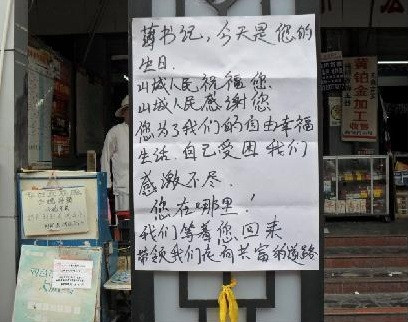 薄书记，今天是您的
生日.
山城人民祝福您.
山城人民感谢您
您为了我们的自由幸福
生活.自己受困我们
感激不尽.
您在哪里！
我们等着您回来
带领我们走向共富的道路
黄铂金加工
收费